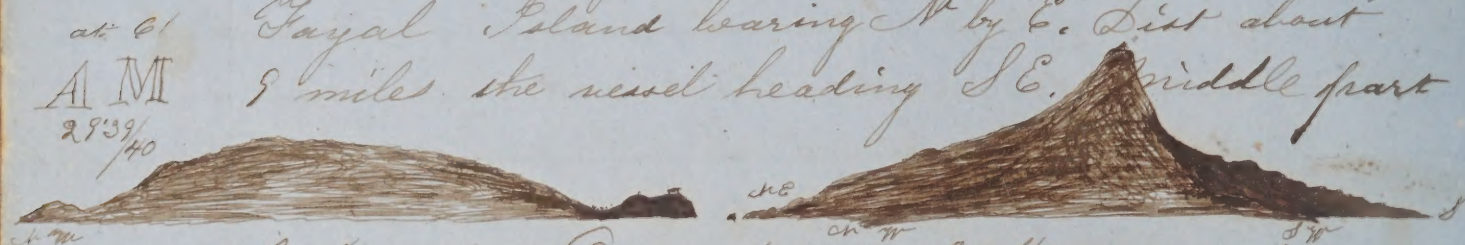 at 6 Fayal Island bearing N by E. Dist about
A M 9 miles the vessel heading S E. Middle part
29°39/40
NE
N W N W S W S